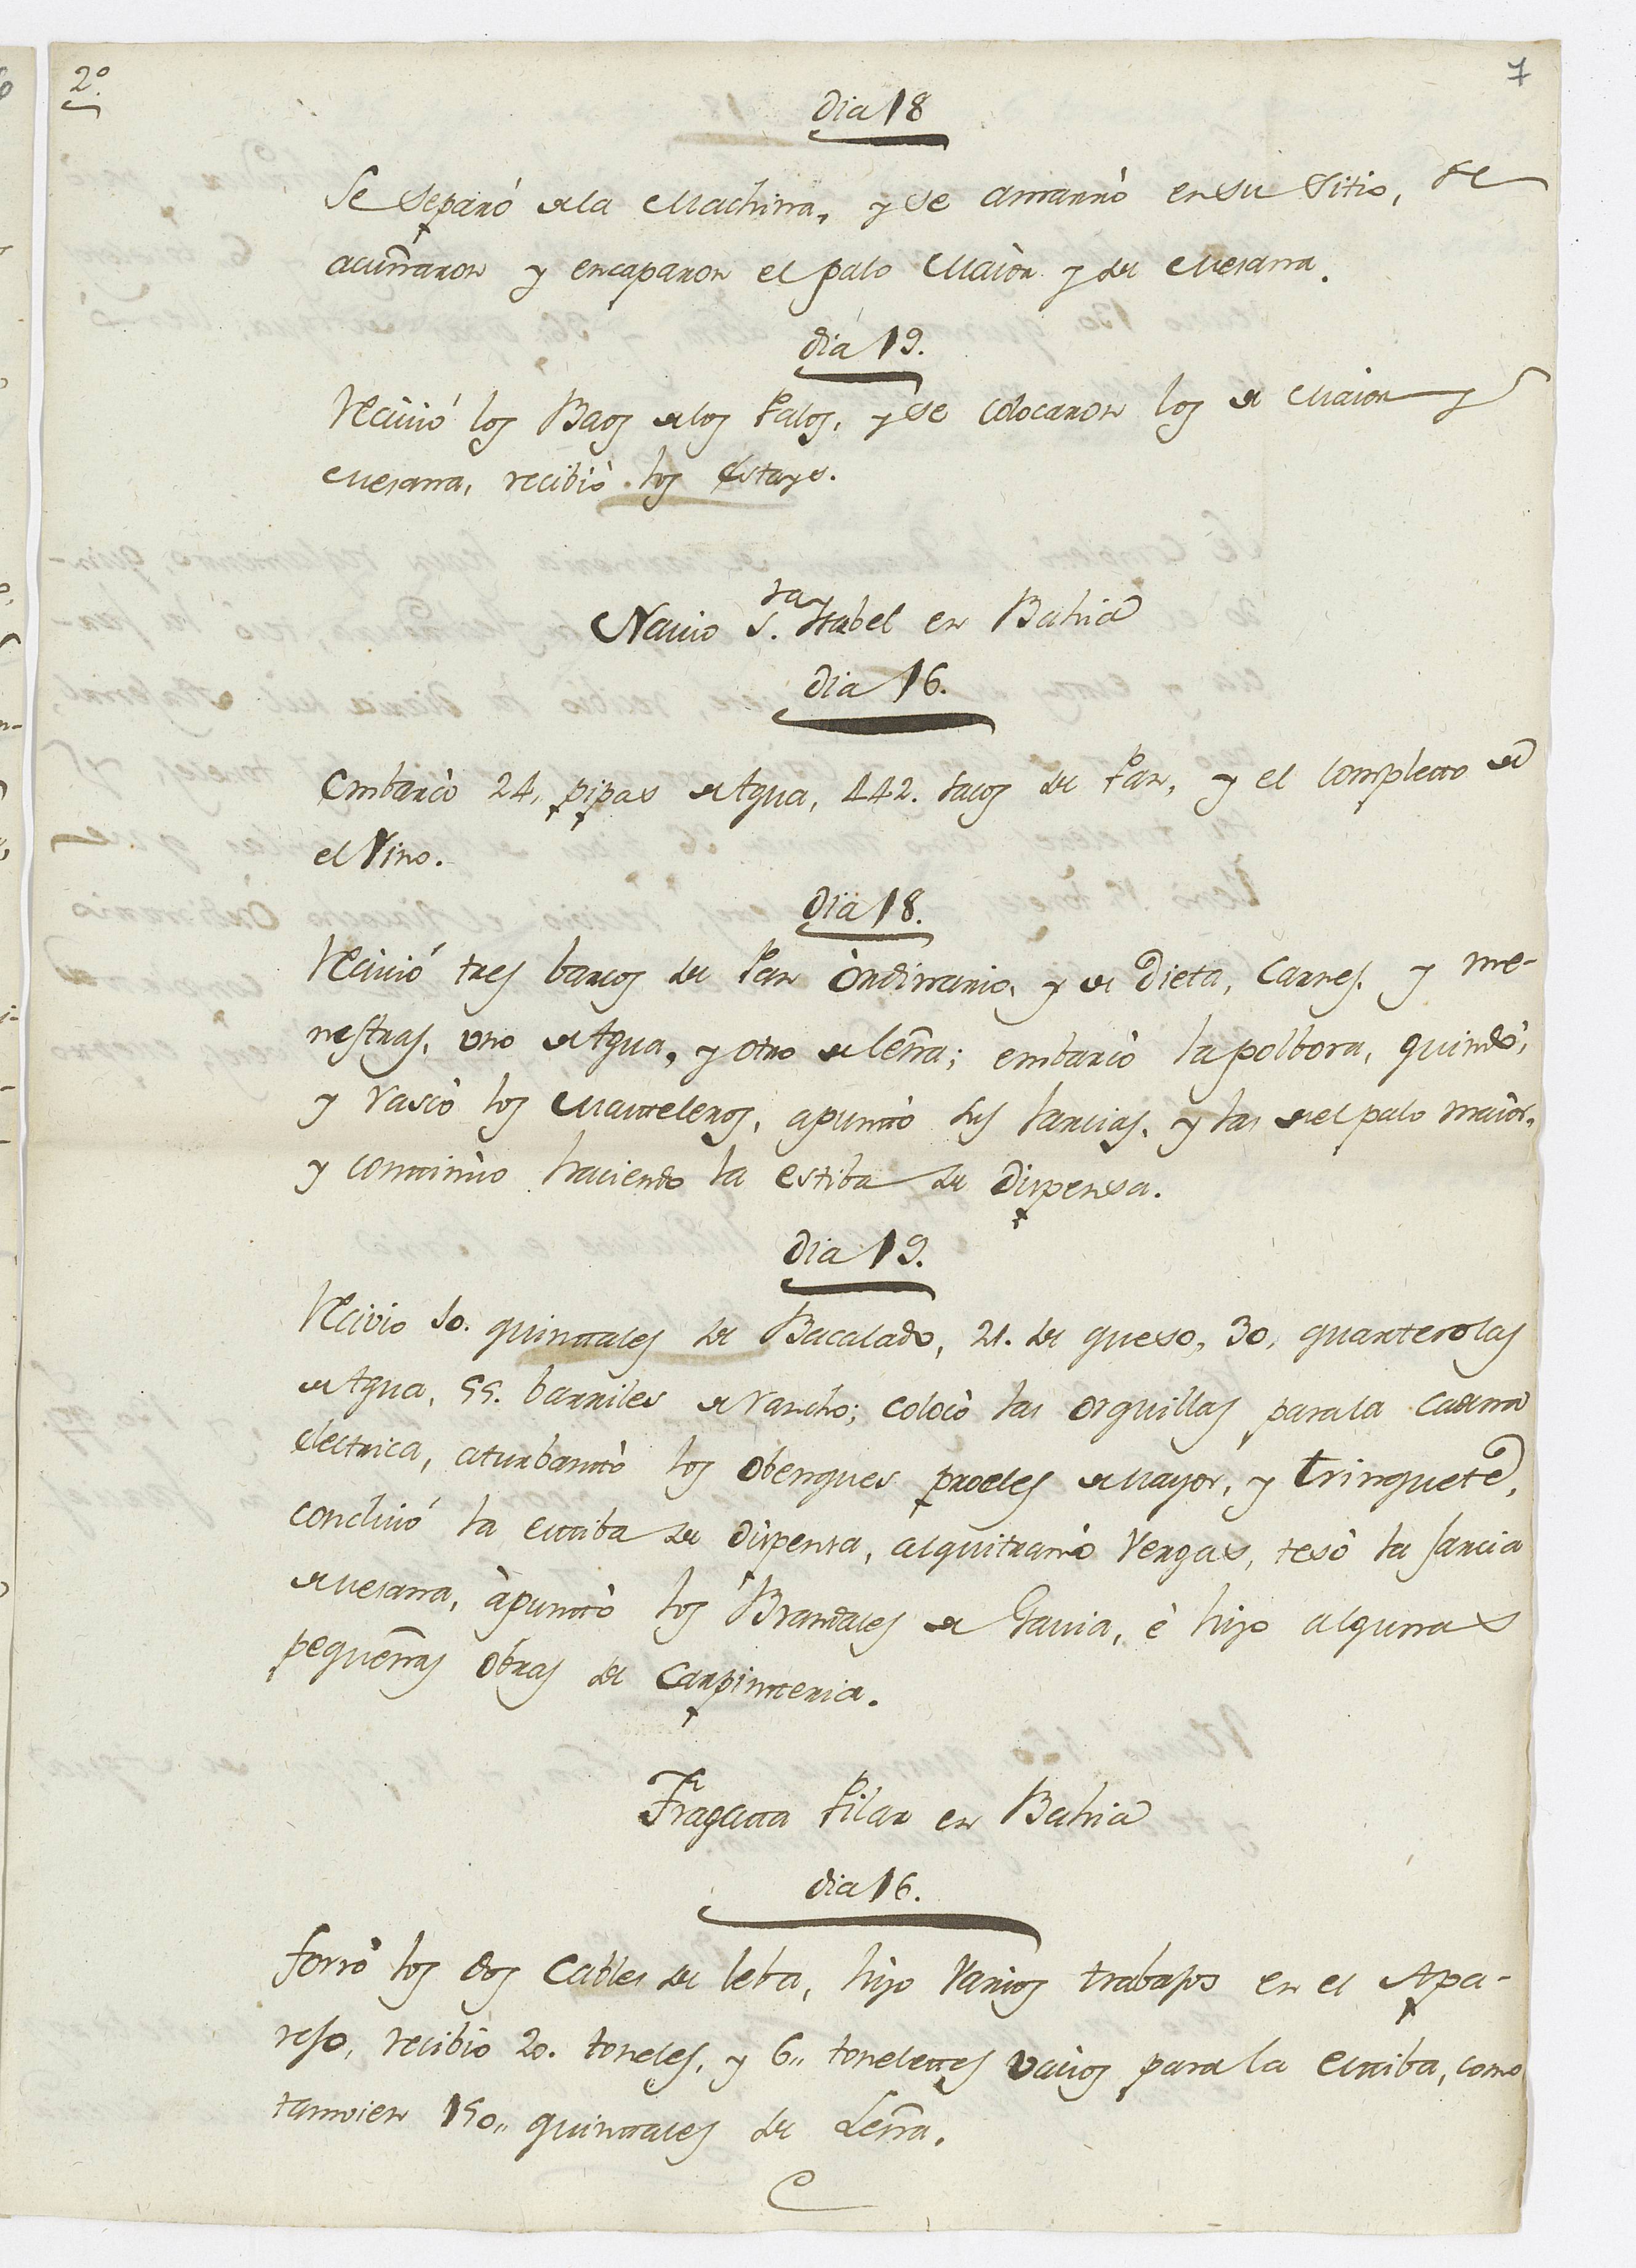 2º
7
Dia 18
Se separó de la Machina, y se amarró en su Sitio, se
acuñaron y encaparon el palo Maior y de Mesana.
dia 19.
Recivió los Baos de los Palos, y se colocaron los de Maior y
Mesana, recibió los Estays.
Navio S.ta Ysabel en Bahia
Dia 16.
Embarcó 24, pipas de Agua, 442. sacos de Pan, y el completto de
el Vino.
Dia 18.
Recivió tres barcos de Pan Ordinnario, y de Dieta, Carnes, y me-
nestras, uno de Agua, y otro de leña; embarcó la polbora, guindó,
y vasió los Mastteleros, apuntó sus Jarcias, y las de el palo maior,
y conttinúo haciendo la estiba de Dispensa.
Dia 19.
Recivio 10. quinttales de Bacalado, 21. de queso, 30, quarterolas
de Agua, 55. barriles de rancho; colocó las orquillas para la cadena
electrica, aturbanttó los obengues proeles de Mayor, y trinquete,
concluió la esttiba de Dispensa, alquitranó Vergas, tesó la Jarcia
de Mesana, apunttó los Brandales de Gavia, é hizo algunas
pequeñas obras de Carpintteria.
Fragatta Pilar en Bahia
dia 16.
forró los dos Cables de leba, hizo varios trabajos en el Apa-
rejo, recibió 20. toneles, y 6,, tonelettes vacios para la esttiba, como
tamvien 150,, quinttales de Leña.